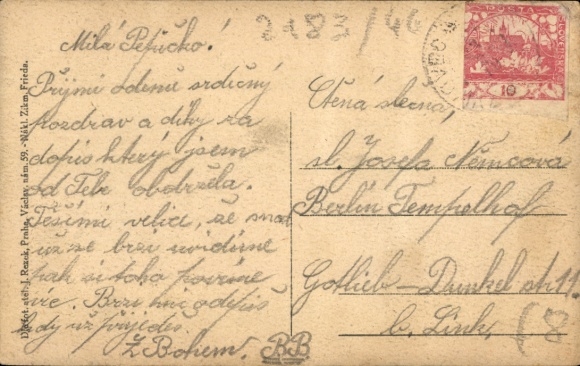 2183/46
Milá Pepičko!
Přijmi odemě srdečný
pozdrav a díky za
dopis který jsem
od Tebe obdržela.
Těšímě velice, že snad
už se brzo uvidíme
pak si toho povíme
víc. Brzo mne odepiš
kdy už přijedeš.
Z Bohem. BB
Ctěná slečna,
sl. Josefa Němcová
Berlín Tempelhof
Gotlieb-Dunkel str 11.
b. Link,
18
POŠTA
10
Václav. nám. 59. - Nákl. Zikm. Frieda.